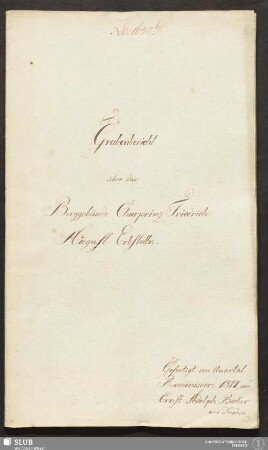 Grubenbericht
über das
Berggebäude Churprinz Friedrich
August Erbstolln.
Gefertigt im Quartal
Reminiscere 1811 von
Ernst Adolph Becker
aus
SLUB